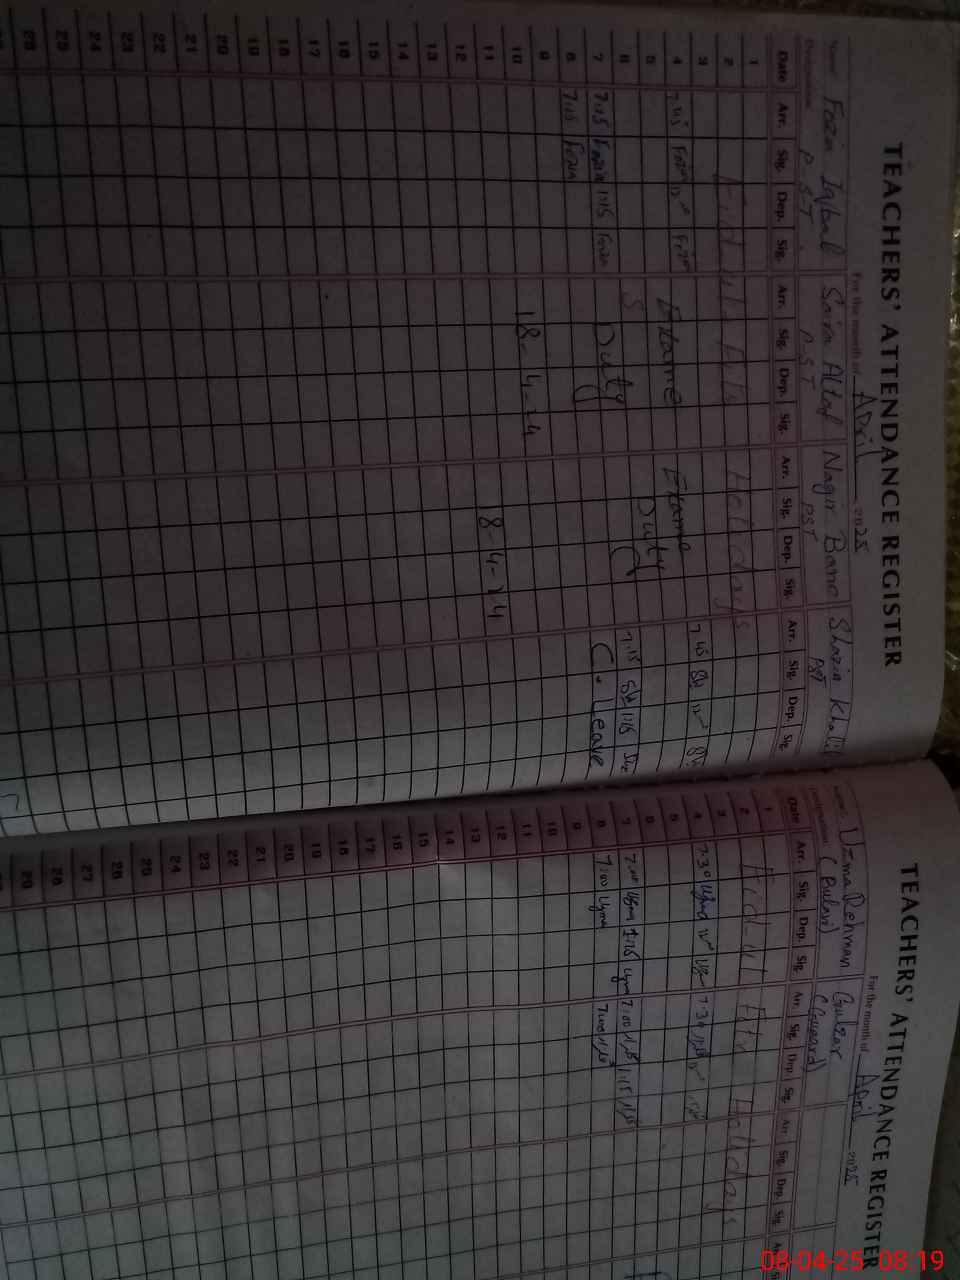 TEACHERS' ATTENDANCE REGISTER
For the month of April 2025
Name Fozia Iqbal Saira Altaf Nagin Bano Shazia Khalil
Designation P.S.T P.S.T PST PST
Date Arr. Sig. Dep. Sig. Arr. Sig. Dep. Sig. Arr. Sig. Dep. Sig. Arr. Sig. Dep. Sig.
1
2 Eid-ul-Fitr Holidays
3
4 7:45 Fozia 12:00 Fozia Exame Exame 7:45 Sh 12:00 Sh
5 Duty
6 S
7 7:15 Fozia 1:15 Fozia Duty 7:15 Sh 1:15 Sh
8 7:15 Fozia C. Leave
9
10 18-4-24
11 8-4-24
12
13
14
15
16
17
18
19
20
21
22
23
24
25
26
TEACHERS' ATTENDANCE REGISTER
For the month of April 2025
Name Uzma Rehman Gulzar
Designation (Bulavi) (Guard)
Date Arr. Sig. Dep. Sig. Arr. Sig. Dep. Sig. Arr. Sig. Dep. Sig.
1
2 Eid-ul-Fitr Holidays
3
4 7:30 Uzma 12:00 Uzma 7:30 12:00
5
6
7 7:00 Uzma 1:15 Uzma 7:00 1:15
8 7:00 Uzma 7:00
9
10
11
12
13
14
15
16
17
18
19
20
21
22
23
24
25
26
27
28
29
08-04-25 08:19